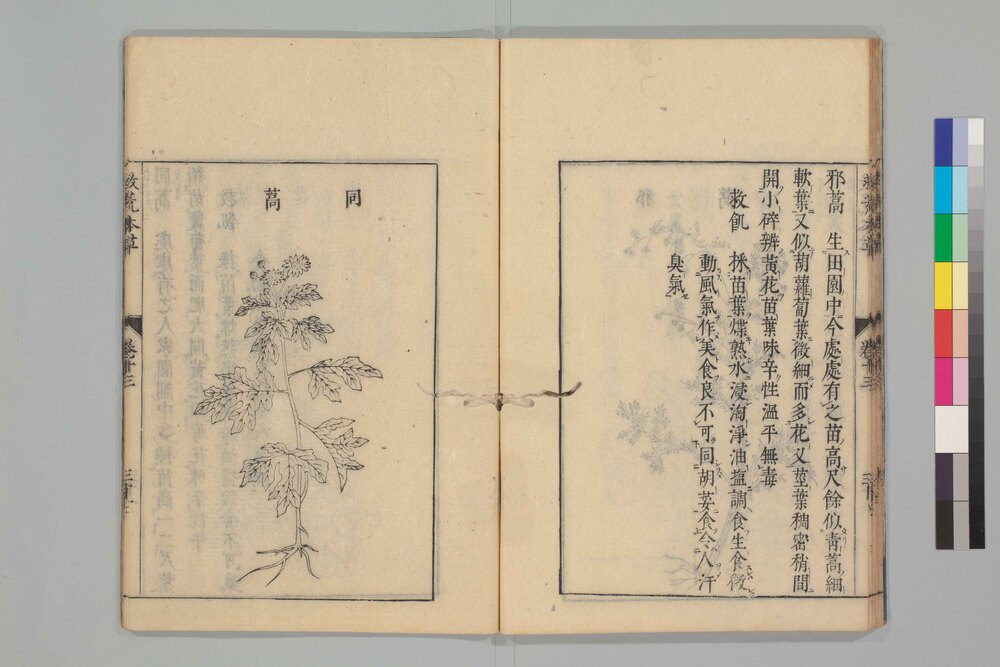 邪蒿 生田園中今處處有之苗高尺餘似青蒿細
軟葉又似葫蘿蔔葉微細而多花又莖葉稠密稍間
開小碎瓣黃花苗葉味辛性溫平無毒
救飢 採苗葉煠熟水浸淘淨油塩調食生食微
動風氣作羹食良不可同胡荽食令人汗
臭氣
同
蒿
救荒本草
卷十三